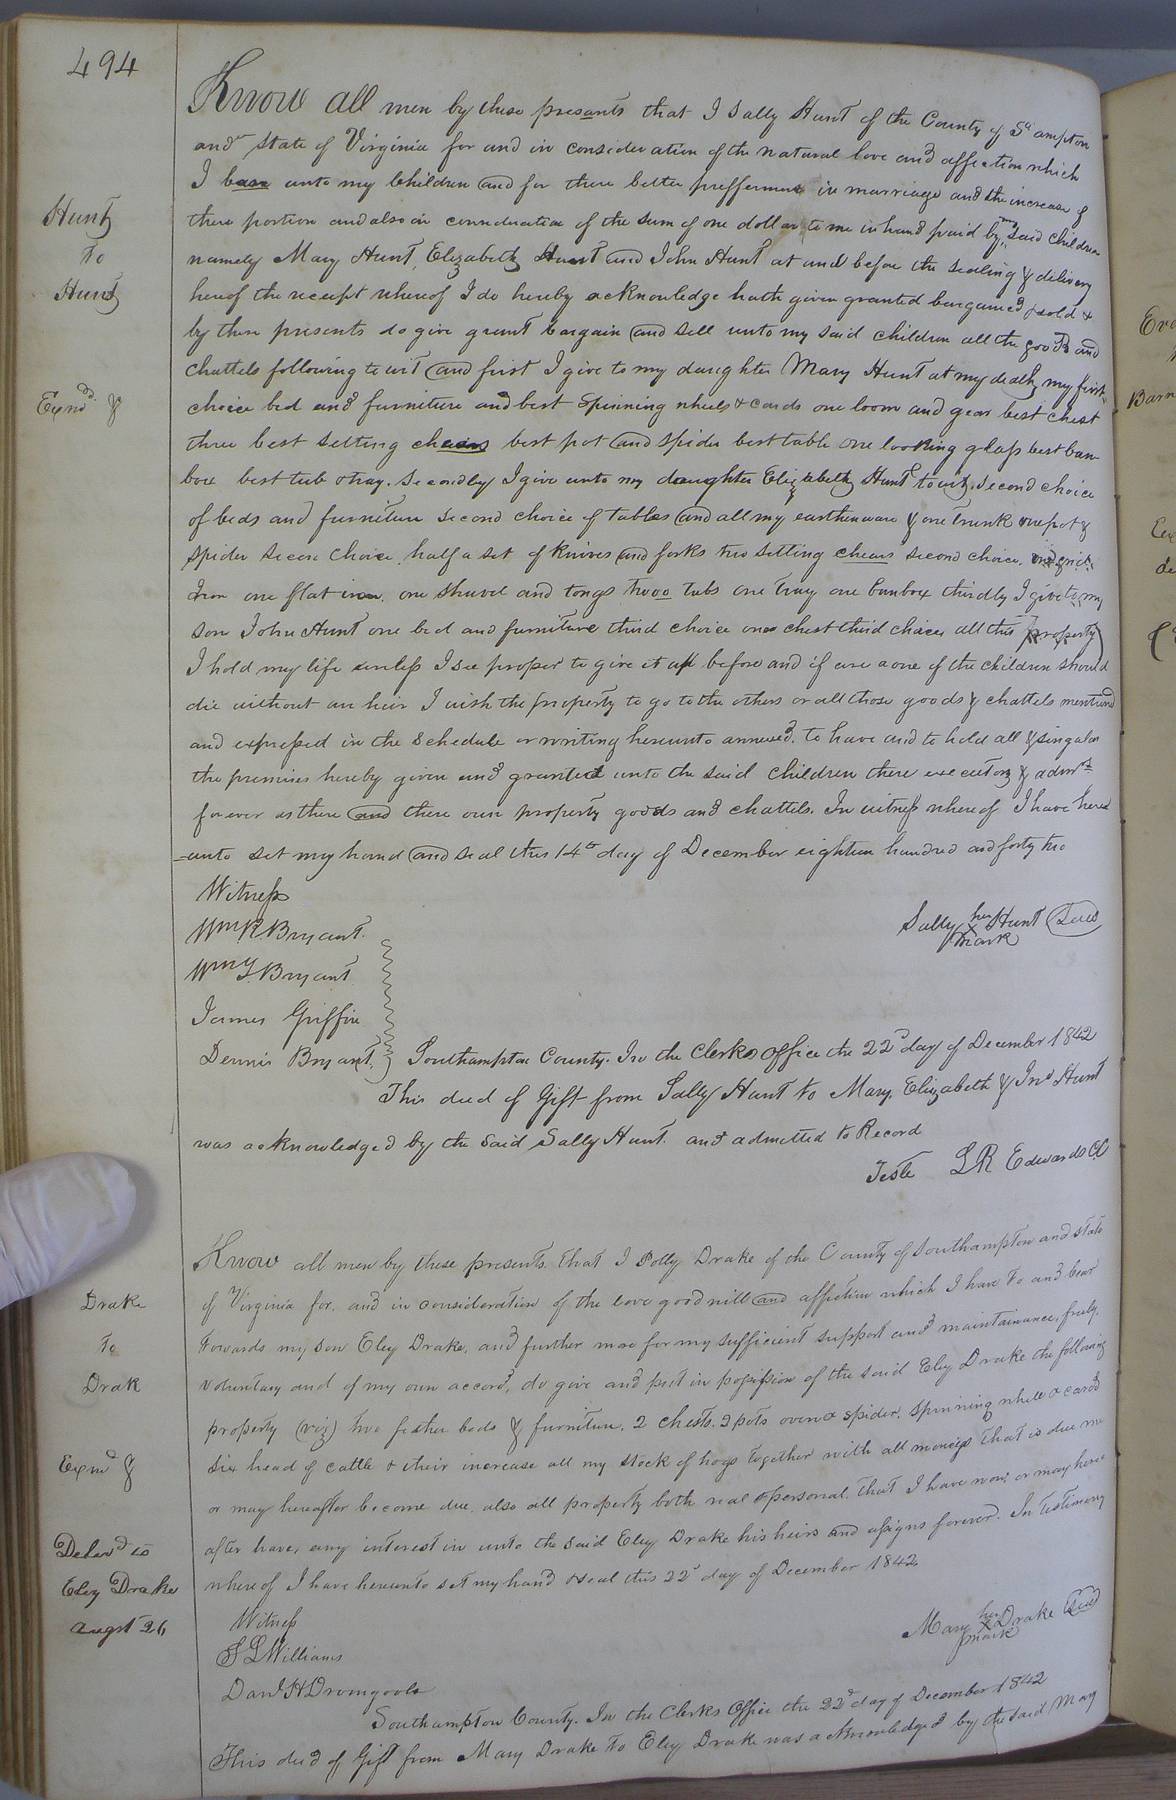 494
Know all men by these presants that I Sally Hunt of the County of So ampton
and State of Virginia for and in consideration of the natural love and affection which
I bear unto my Children and for there better prefferment in marriage and the increase of
Hunt
there portion and also in connsideration of the sum of one dollar to me in hand paid by my said Children
to
namely Mary Hunt, Elizabeth Hunt and John Hunt at and before the sealing & delivery
Hunt
hereof the receipt whereof I do hereby acknowledge hath given granted bargained & sold &
by these presents do give grant bargain and sell unto my said children all the goods and
chattels following to wit and first I give to my daughter Mary Hunt at my death my first
Exmd &
choice bed and furniture and best spinning wheels & cards one loom and gear best chest
three best setting chears best pot and spider best table one looking glass best ban-
box best tub & tray. Secondly I give unto my daughter Elizabeth Hunt towit, second choice
of beds and furniture second choice of tables and all my earthenware & one Trunk one pot &
spider secon choice, half a set of knives and forks two setting chears second choice, one grid
Iron one flat iron, one shuvel and tongs twoo tubs one Tray one banbox thirdly I give to my
son John Hunt one bed and furniture third choice one chest third choice all this property
I hold my life unless I see proper to give it up before and if are a one of the children should
die without an heir I wish the property to go to the others or all those goods & chattels mentiond
and expressed in the Schedule or writing hereunto annexed. To have and to hold all & singular
the premises hereby given and granted unto the said Children there executors & admrs
forever as there and there own property goods and chattels. In witness whereof I have here
=unto set my hand and seal this 14th day of December eighteen hundred and forty two
Witness
Sally her Hunt Seal
x
mark
Wm R. Bryant.
Wm Y. Bryant
James Griffin
Dennis Bryant. Southampton County. In the Clerks office the 22d day of December 1842
This deed of Gift from Sally Hunt to Mary, Elizabeth & Jno Hunt
was acknowledged by the said Sally Hunt and admitted to Record
Teste L R Edwards CC
Know all men by these presents, that I Polly Drake of the County of Southampton and state
Drake
of Virginia for, and in consideration of the love good will and affection which I have to and bear
to
towards my son Eley Drake, and further more for my sufficient support and maintainance, freely,
Drak
voluntary and of my own accord, do give and put in possession of the said Eley Drake the following
property (viz) two fether beds & furniture, 2 chests, 2 pots oven & spider, spinning wheel & cards
Exmd &
six head of cattle & their increase all my stock of hogs together with all moneys that is due me
or may hereafter become due, also all property both real & personal, that I have now or may here
Delivd to
after have, any interest in unto the said Eley Drake his heirs and assigns forever. In testimony
Eley Drake
whereof I have hereunto set my hand & seal this 22d day of December 1842
Augst 26
Witness
Mary her Drake Seal
x
mark
S L Williams
Danl H Dromgoole
Southampton County. In the Clerks Office the 22d day of December 1842
This deed of Gift from Mary Drake to Eley Drake was acknowledged by the said Mary